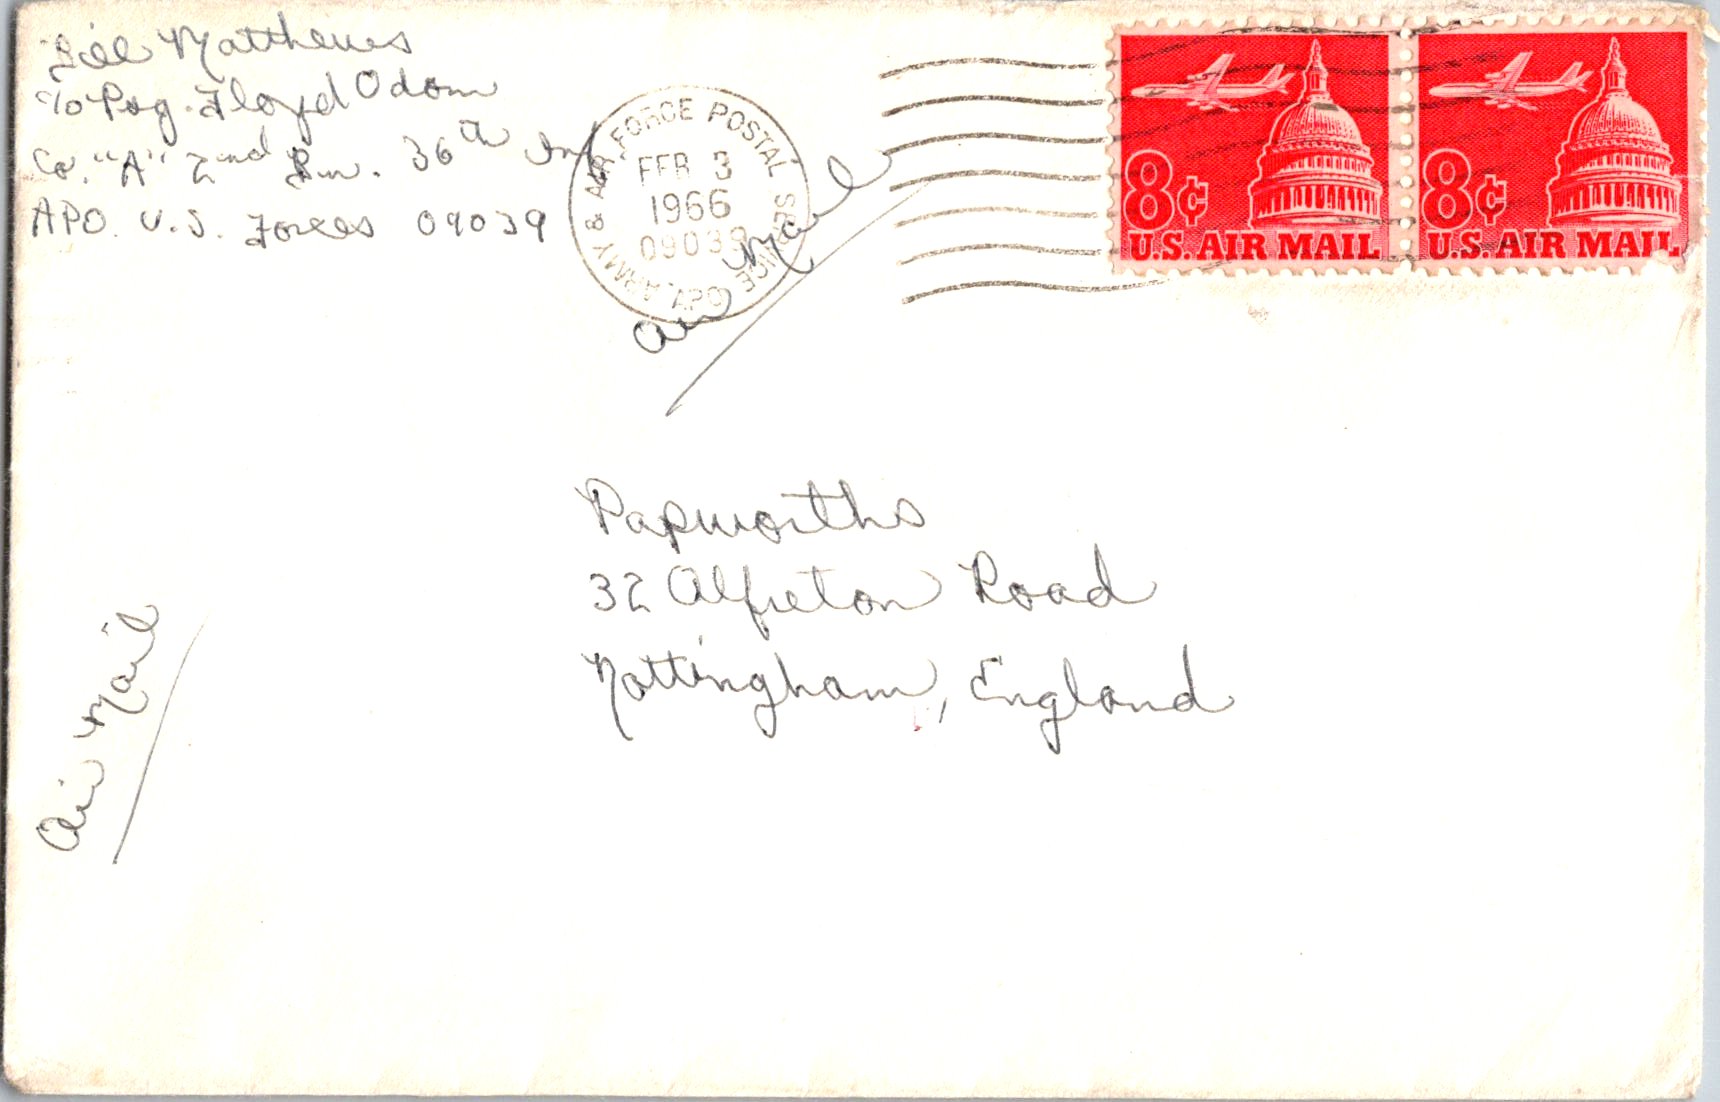 Bill Matthews
c/o Psg. Floyd Odom
Co. "A" 2nd Bn. 36th Inf
APO. U.S. Forces 09039
ARMY & AIR FORCE POSTAL SERVICE
FEB 3
1966
09039
APO
Air Mail
8¢
U.S. AIR MAIL
8¢
U.S. AIR MAIL
Papworths
32 Alfreton Road
Nottingham, England
Air Mail